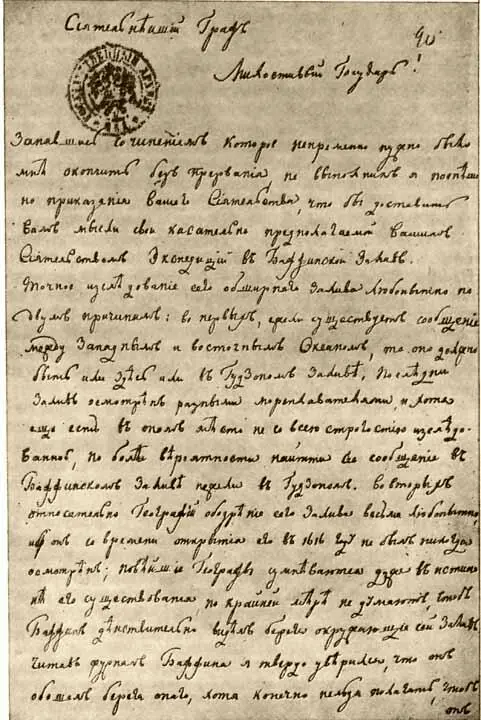 Сіятельнѣйшій Графъ
Милостивый Государь!
Занявшись сочиненіемъ которое непременно нужно было
мнѣ окончить безъ прерванія не выполнилъ я
по приказанія Вашего Сіятельства, что бы доставить
Вамъ мысли свои касательно предполагаемой Вашимъ
Сіятельствомъ Экспедицій въ Баффинской Заливъ.
Точное изслѣдованіе сего обширнаго Залива любопытно по
двумъ причинамъ: во первыхъ, ежели существуетъ сообщеніе
между Западнымъ и восточнымъ Океаномъ, то оно должно
быть или здѣсь или въ Гудзономъ Заливѣ, Послѣдни
Заливъ осмотрѣнъ разными мореплавателями, и хотя
еще есть въ ономъ мѣсто не со всею строгостію изслѣдо-
ванное, но болѣе вѣроятности найтти сіе сообщеніе въ
Баффинскомъ Заливѣ нежели въ Гудзономъ. Во вторыхъ
относительно Географіи обозрѣніе сего Залива весьма любопытно,
ибо онъ со времени открытія его въ 1616 году не былъ никогда
осмотрѣнъ; новѣйшіе Географы сумнѣваются даже въ истин
нѣ его существованія по крайней мѣрѣ не думаютъ, чтобъ
Баффинъ дѣйствительно видѣлъ берега окружающіе сей Заливъ
читавъ журналъ Баффина я твердо увѣрился, что онъ
обошелъ берега онаго, хотя конечно нельзя полагать, чтобъ
онъ